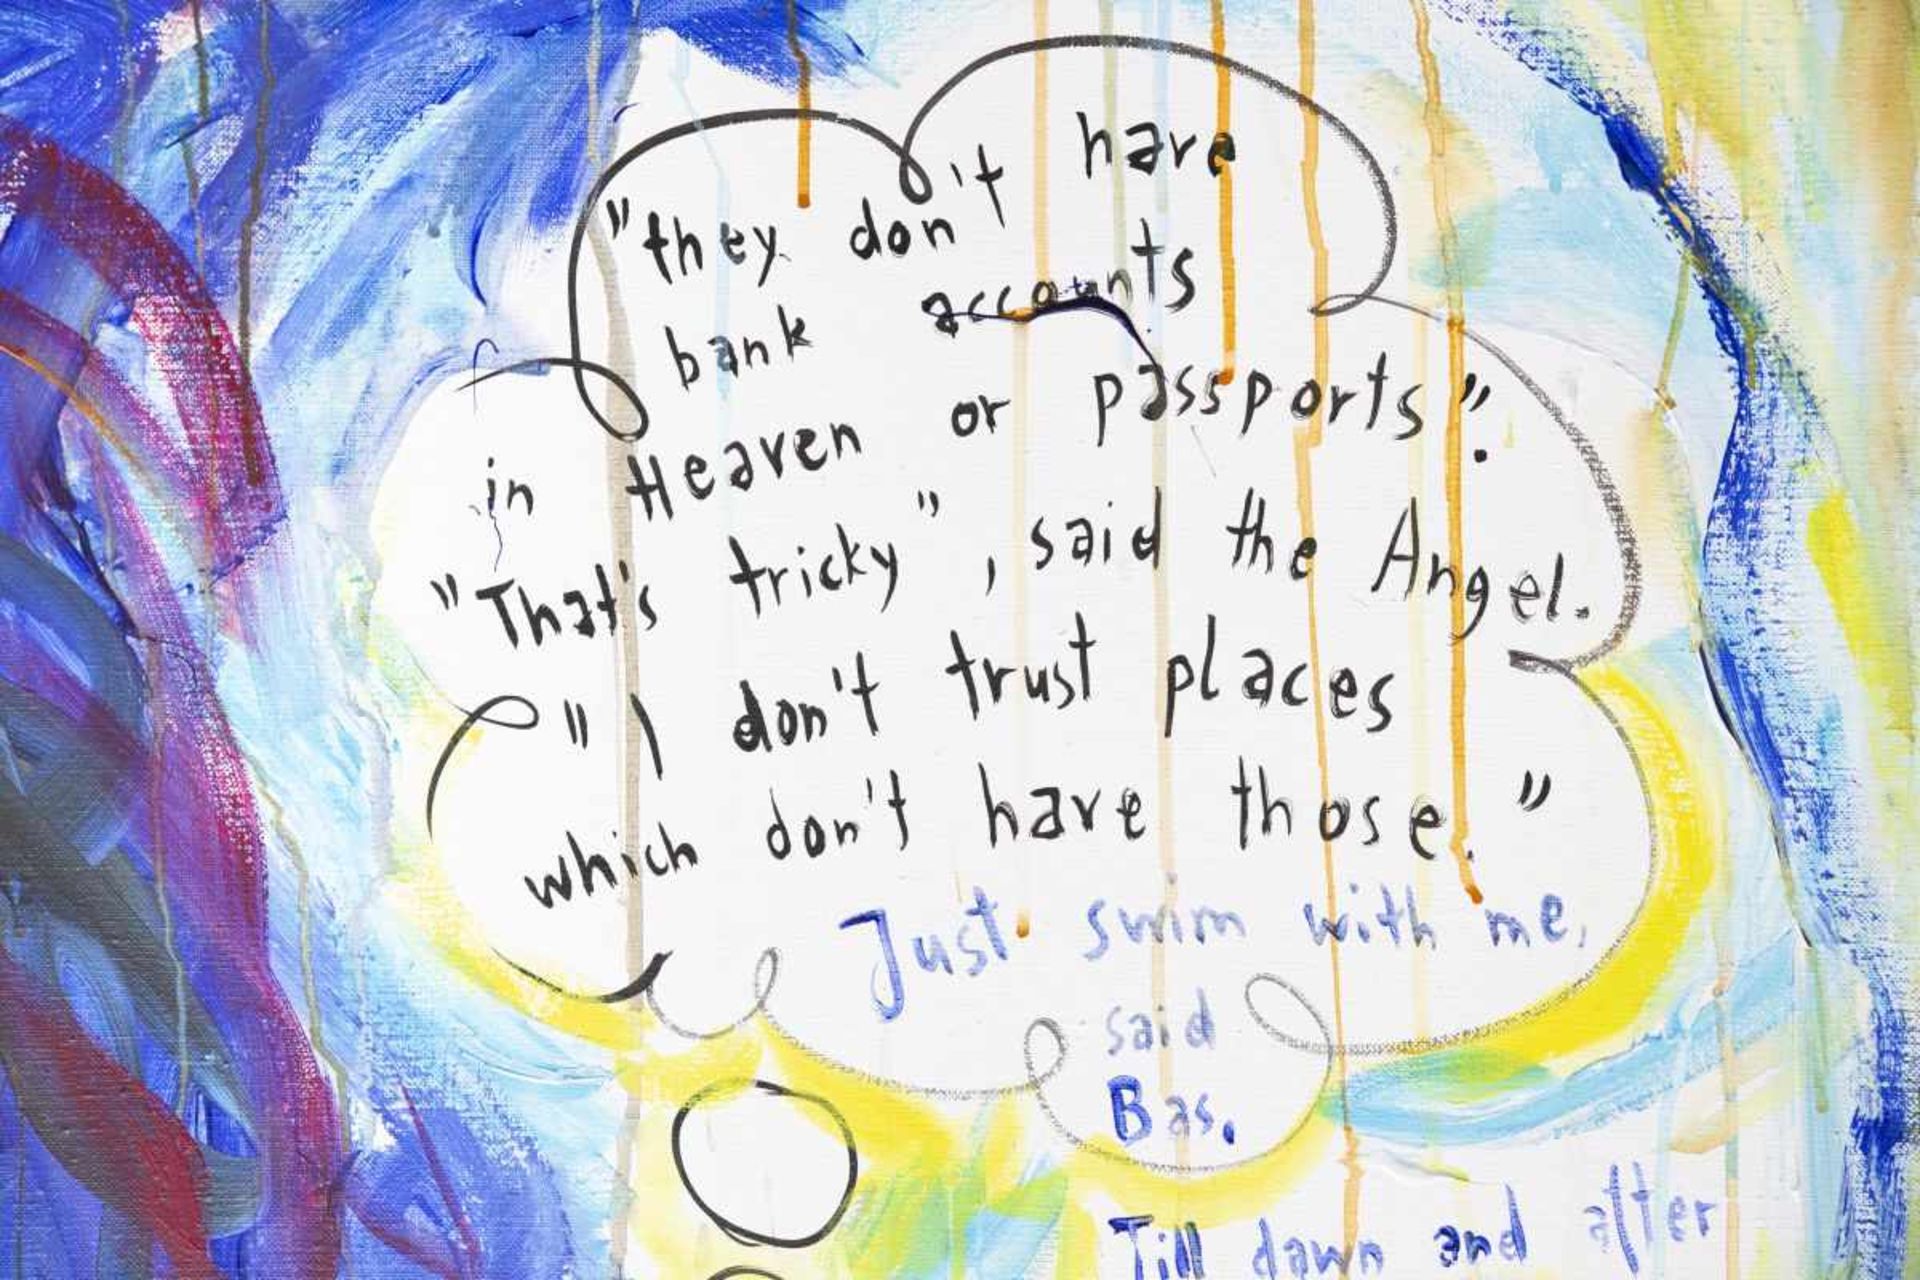 "they don't have
bank accounts
in Heaven or passports".
"That's tricky", said the Angel.
"I don't trust places
which don't have those."
Just swim with me,
said
Bas.
Till dawn and after